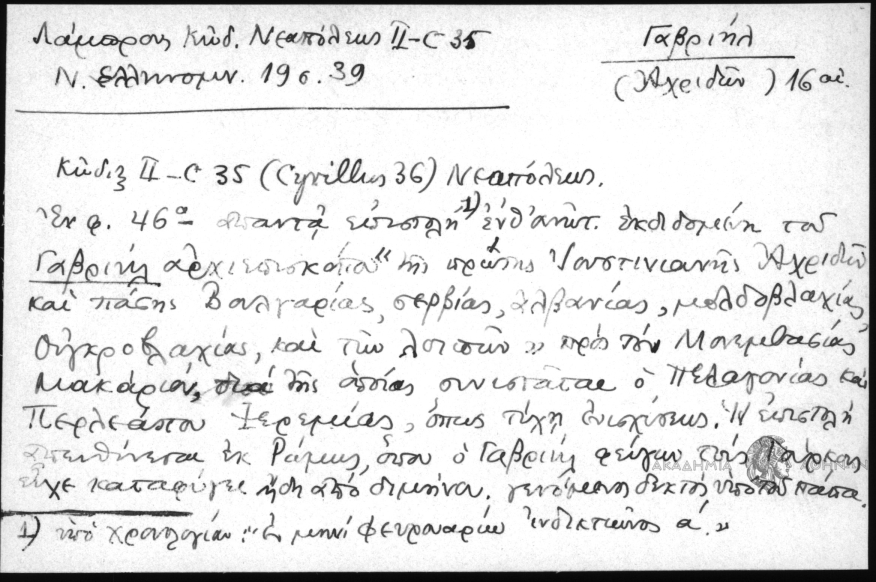 Λάμπρος Κώδ. Νεαπόλεως II-C 35
Ν. Ελληνομν. 19 σ. 39
Γαβριήλ
(Ἀχριδῶν) 16 αἰ.
Κῶδιξ II-C 35 (Cyrillus 36) Νεαπόλεως.
Ἐν φ. 46α ἀπαντᾷ ἐπιστολή 1) ἐνθ' ἀνωτ. ἐκδιδομένη τοῦ
Γαβριήλ ἀρχιεπισκόπου "τῆς πρώτης Ἰουστινιανῆς Ἀχριδῶν
καί πάσης Βουλγαρίας, σερβίας, ἀλβανίας, μολδοβλαχίας,
οὐγκροβλαχίας, καί τῶν λοιπῶν" πρός τόν Μονεμβασίας
Μακάριον, διά τῆς ὁποίας συνιστᾶται ὁ Πελαγονίας καί
Περλεάπου Ἱερεμίας, ὅπως τύχῃ ἐνισχύσεως. Ἡ ἐπιστολή
ἀπευθύνεται ἐκ Ρώμης, ὅπου ὁ Γαβριήλ φεύγων τούς Τούρκους
εἶχε καταφύγει ἤδη ἀπό διμήνου. γενόμενος δεκτός ὑπό τοῦ πάπα.
1) ὑπό χρονολογίαν: "Ἐν μηνί φευρουαρίῳ ἰνδικτιῶνος α΄."
ΑΚΑΔΗΜΙΑ ΑΘΗΝΩΝ